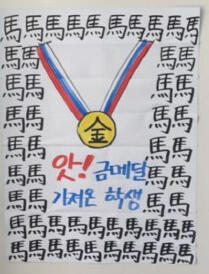 馬馬馬馬馬馬馬馬馬馬
馬馬 馬馬
馬馬 馬馬
馬馬 金 馬馬
馬馬 馬馬
馬馬 앗! 금메달 馬
馬馬 가져온 학생 馬
馬馬馬馬馬馬馬馬馬
馬馬馬馬馬馬馬馬馬